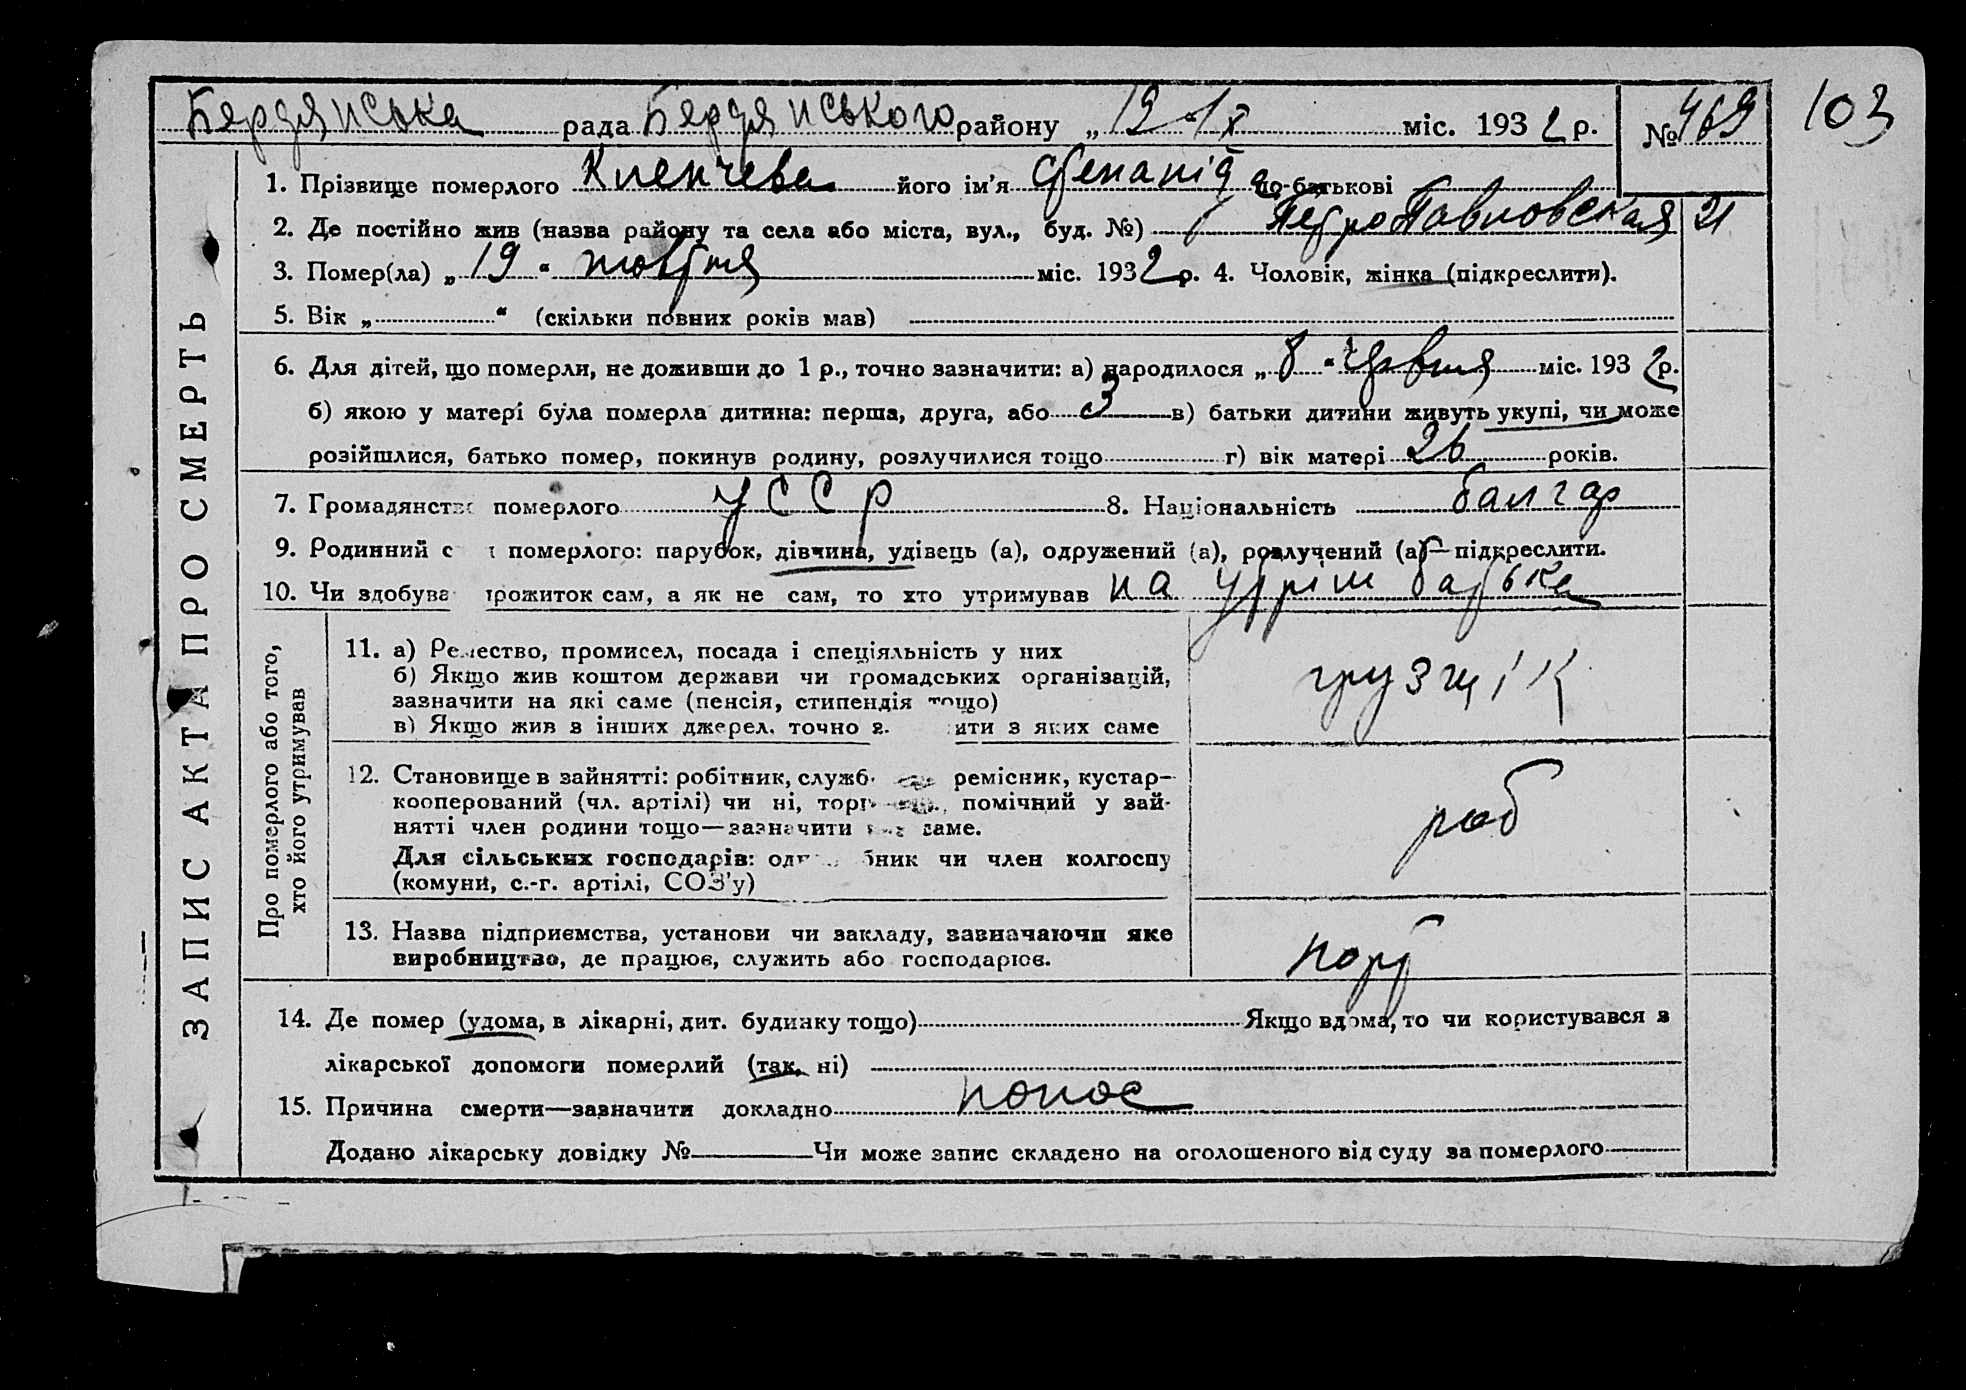 103
Бердянська рада Бердянського району „19“ IX міс. 1932 р. № 469
1. Прізвище померлого Кленчева його ім’я Степаніда по-батькові
2. Де постійно жив (назва району та села або міста, вул., буд. №) Петропавловская 21
3. Помер(ла) „19“ жовтня міс. 1932 р. 4. Чоловік, жінка (підкреслити).
5. Вік „ “ (скільки повних років мав)
6. Для дітей, що померли, не доживши до 1 р., точно зазначити: а) народилося „8“ червня міс. 1932 р.
б) якою у матері була померла дитина: перша, друга, або 3 в) батьки дитини живуть укупі, чи може
розійшлися, батько помер, покинув родину, розлучилися тощо г) вік матері 26 років.
7. Громадянство померлого УССР 8. Національність балгар
9. Родинний с т померлого: парубок, дівчина, удівець (а), одружений (а), розлучений (а)—підкреслити.
10. Чи здобува прожиток сам, а як не сам, то хто утримував на утрім батька
ЗАПИС АКТА ПРО СМЕРТЬ
Про померлого або того,
хто його утримував
11. а) Ремество, промисел, посада і спеціяльність у них
б) Якщо жив коштом держави чи громадських організацій,
зазначити на які саме (пенсія, стипендія тощо)
в) Якщо жив з інших джерел, точно з ити з яких саме
грузщік
12. Становище в зайнятті: робітник, служб ремісник, кустар-
кооперований (чл. артілі) чи ні, торг помічний у зай-
нятті член родини тощо—зазначити саме.
Для сільських господарів: одн бник чи член колгоспу
(комуни, с.-г. артілі, СОЗ’у)
раб
13. Назва підприємства, установи чи закладу, зазначаючи яке
виробництво, де працює, служить або господарює.
порт
14. Де помер (удома, в лікарні, дит. будинку тощо) Якщо вдома, то чи користувався з
лікарської допомоги померлий (так, ні)
15. Причина смерти—зазначити докладно понос
Додано лікарську довідку № Чи може запис складено на оголошеного від суду за померлого